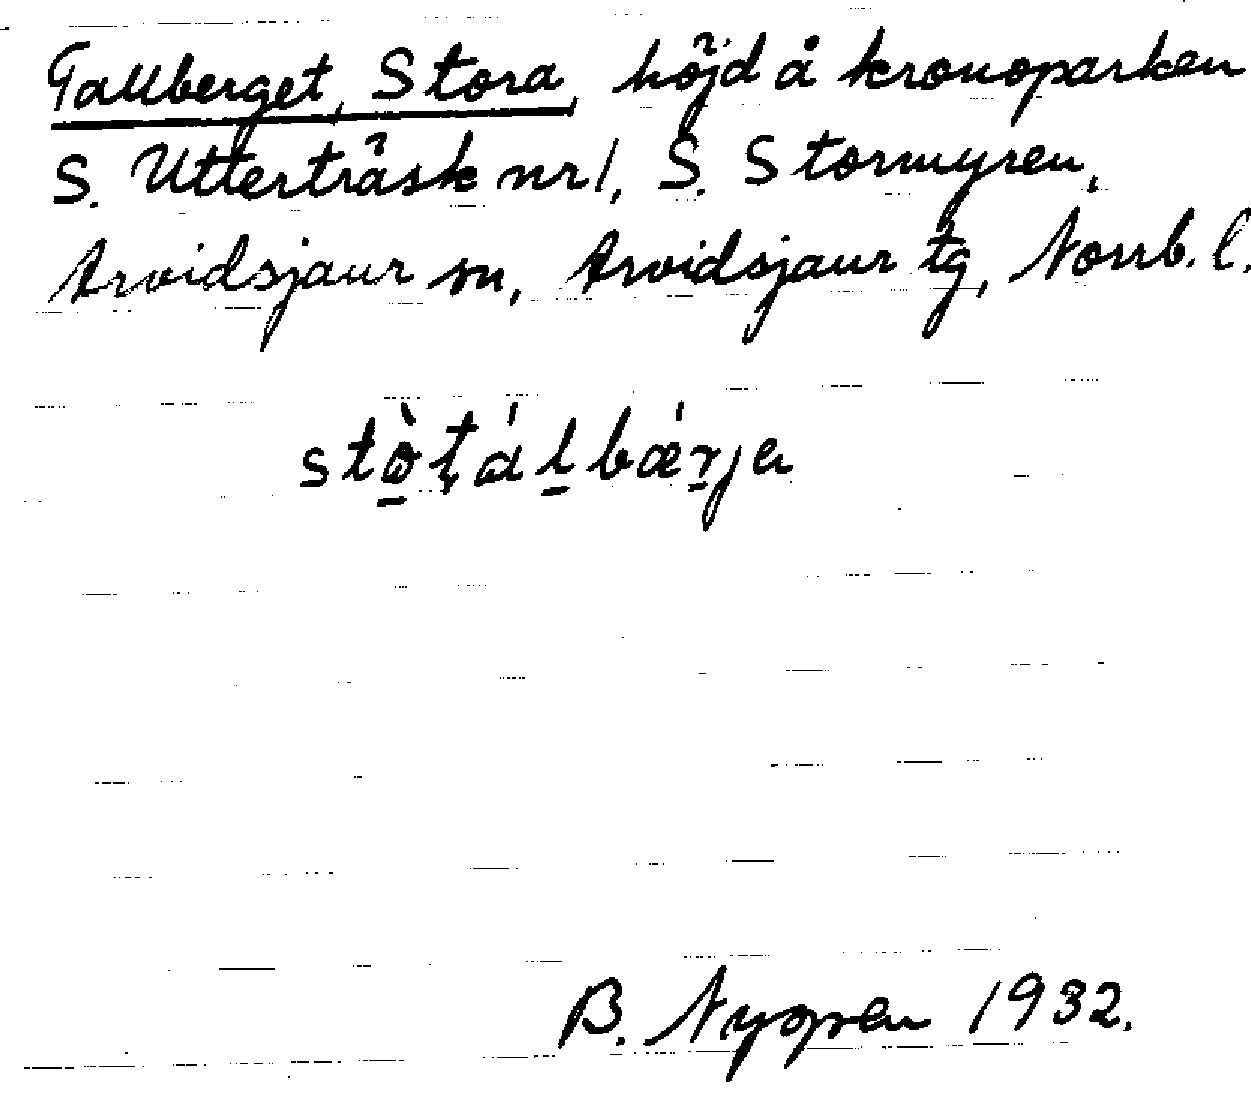 Tallberget, Stora, höjd å kronoparken
S. Utterträsk nr 1, S. Stormyren,
Arvidsjaur sn, Arvidsjaur tg, Norrb. l.
B. Nygren 1932.